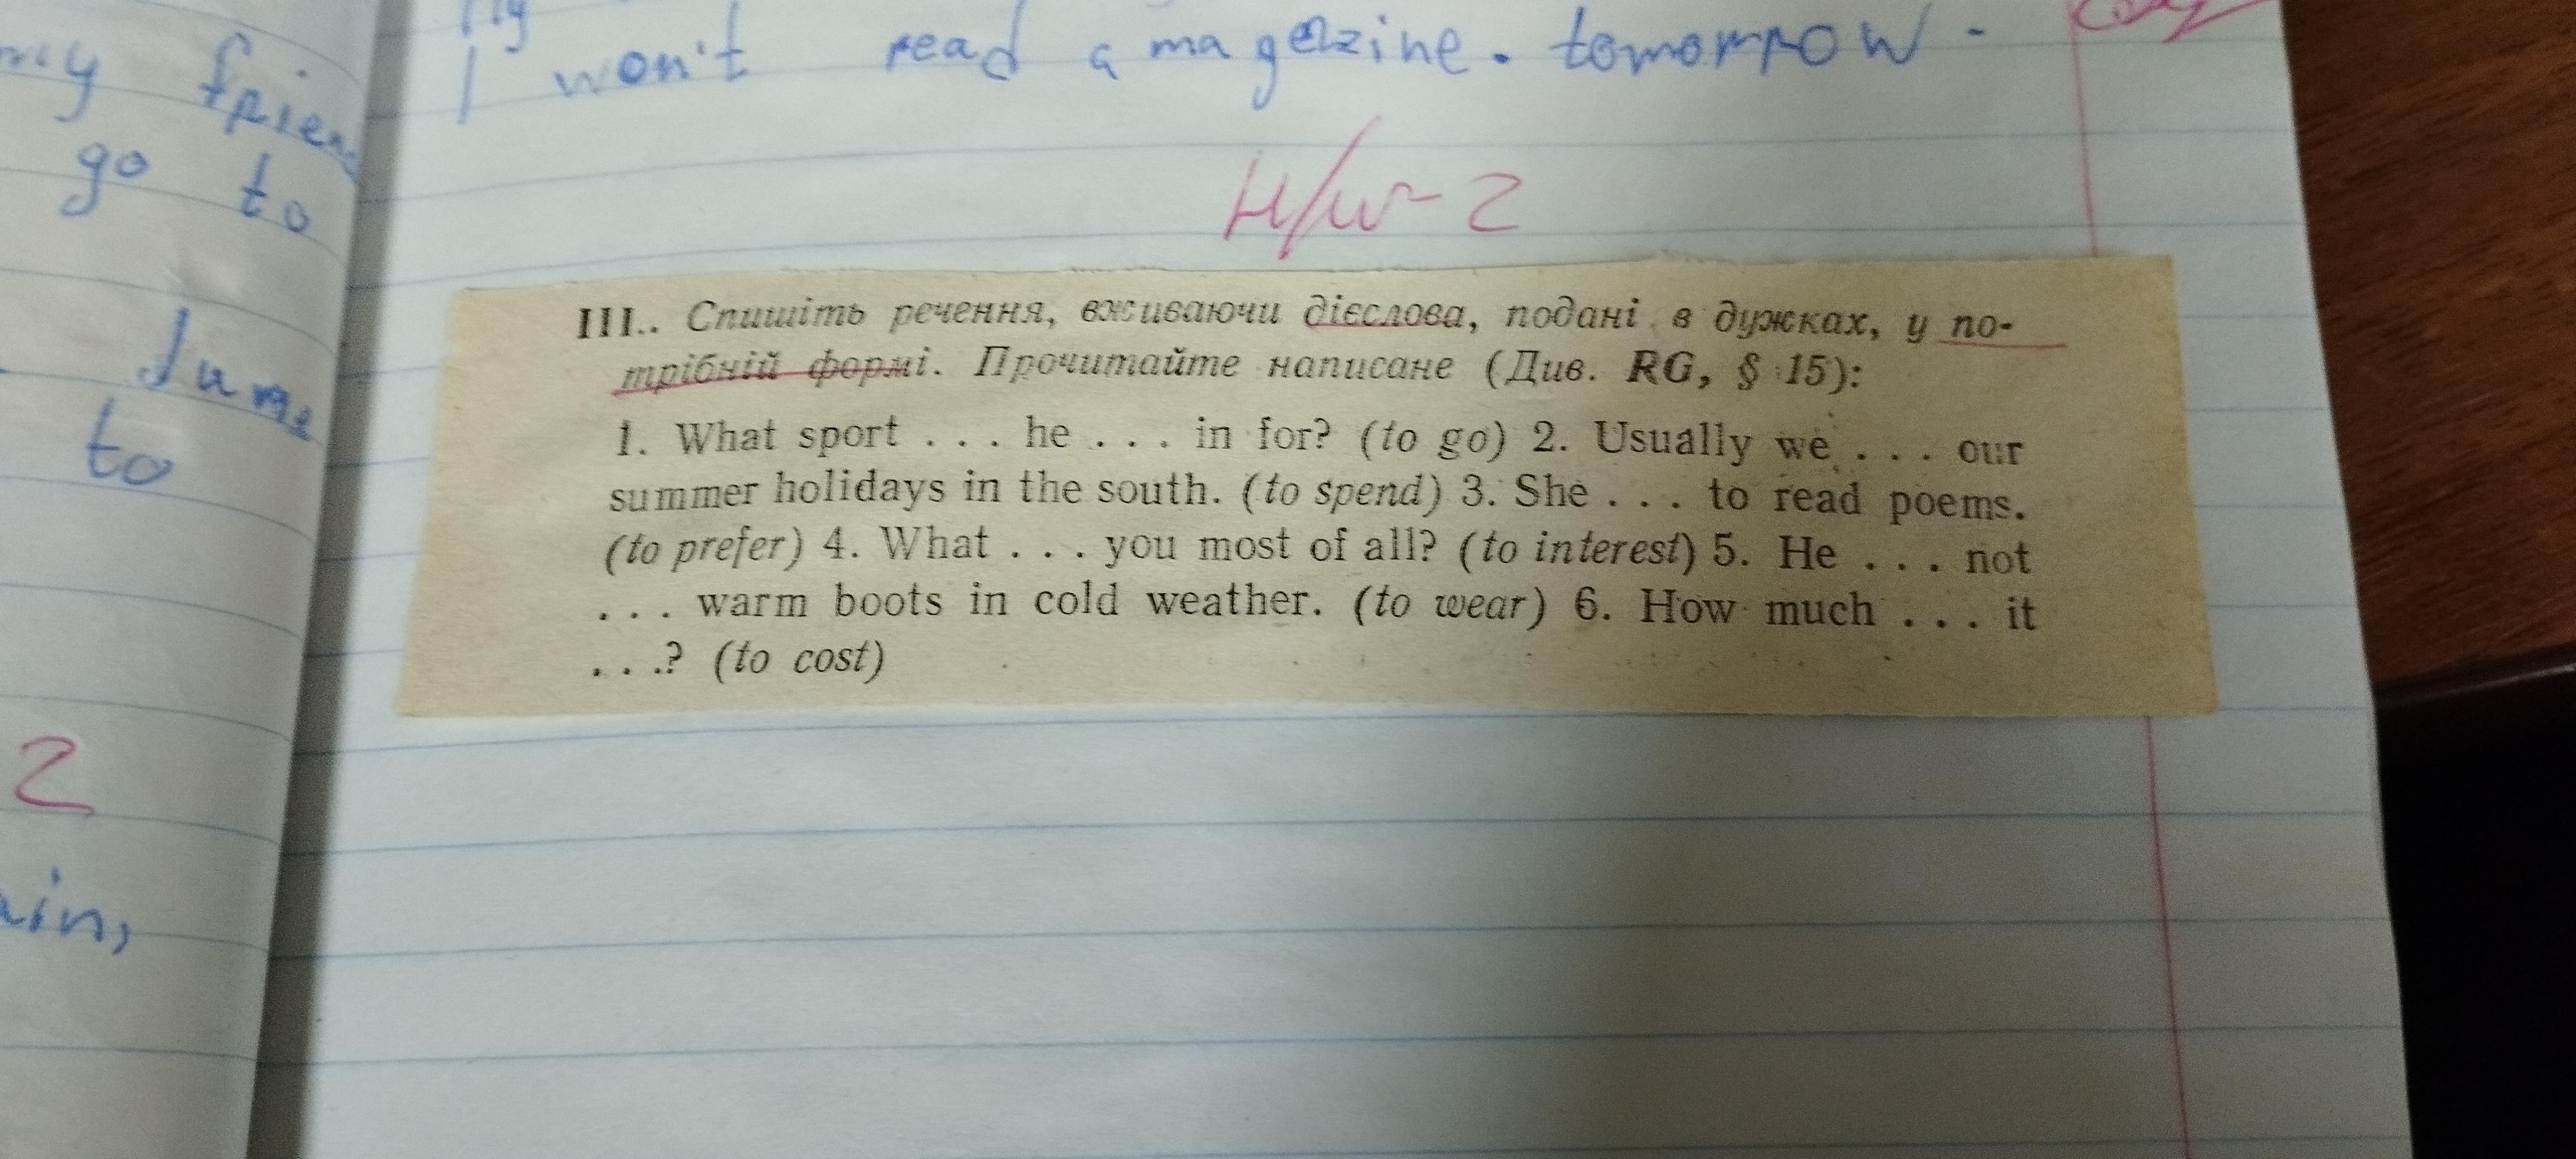 my friend
go to
June
to
2
ain,
I won't read a magazine. tomorrow.
H/w - 2
III.. Спишіть речення, вживаючи дієслова, подані в дужках, у по-
трібній формі. Прочитайте написане (Див. RG, § 15):
1. What sport . . . he . . . in for? (to go) 2. Usually we . . . our
summer holidays in the south. (to spend) 3. She . . . to read poems.
(to prefer) 4. What . . . you most of all? (to interest) 5. He . . . not
. . . warm boots in cold weather. (to wear) 6. How much . . . it
. . .? (to cost)